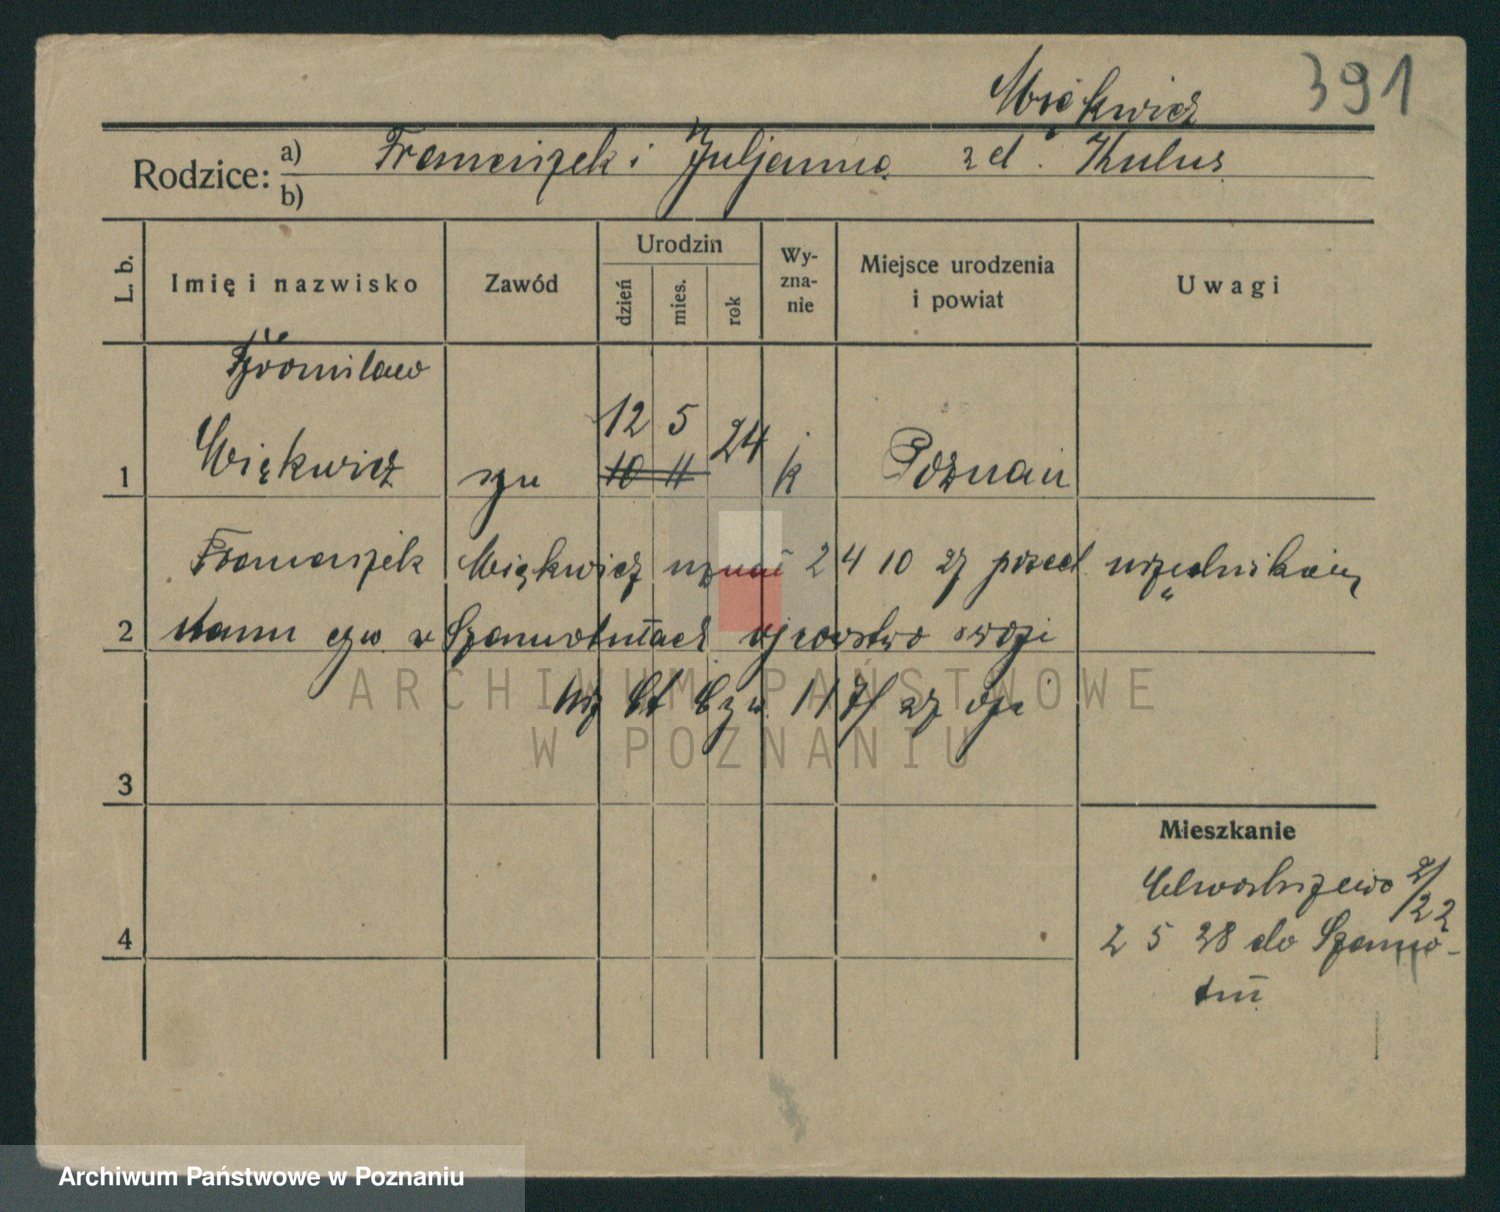 391
Miękwicz
Rodzice: a) Franciszek i Juljanna zd. Kulus
b)
L. b. Imię i nazwisko Zawód Urodzin dzień mies. rok Wy-zna-nie Miejsce urodzenia i powiat Uwagi
Bronisław
12 5
1 Miękwicz syn 10 11 24 k Poznań
Franciszek Miękwicz uznał 24 10 27 przed urzędnikiem
2 stanu cyw. w Szamotułach ojcostwo swoje
Urz St Cyw. 117/27
3
Mieszkanie
Chwaliszewo 2/
/22
4 2 5 28 do Szamo-
tuł
ARCHIWUM PAŃSTWOWE
W POZNANIU
Archiwum Państwowe w Poznaniu